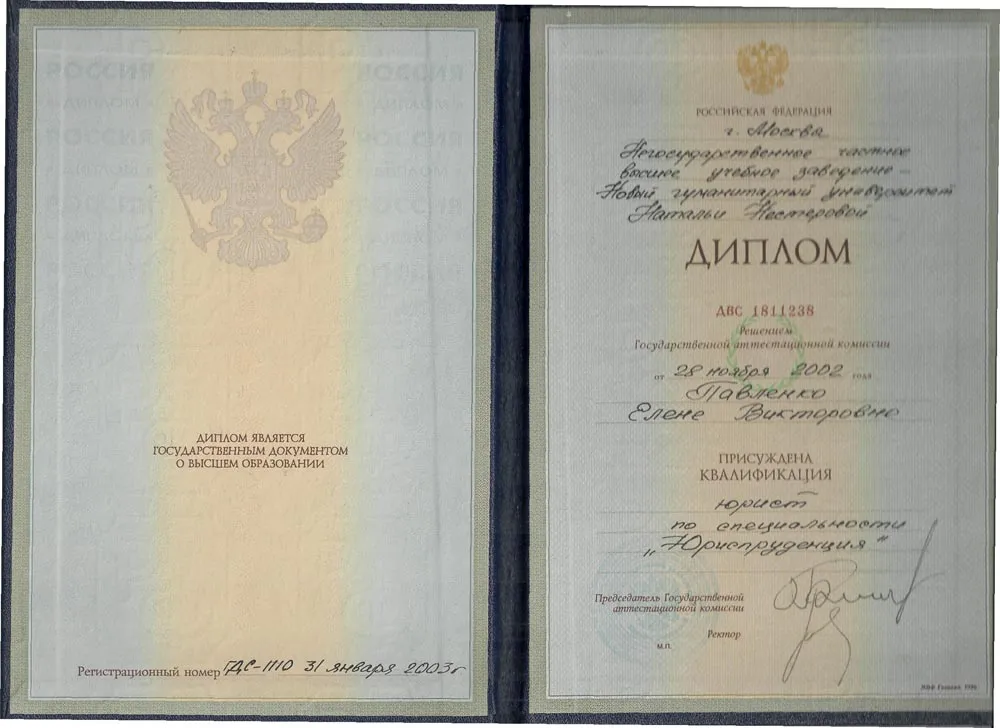 РОССИЯ РОССИЯ
ДИПЛОМ ДИПЛОМ
РОССИЯ РОССИЯ
ДИПЛОМ ДИПЛОМ
РОССИЯ РОССИЯ
ДИПЛОМ ЯВЛЯЕТСЯ
ГОСУДАРСТВЕННЫМ ДОКУМЕНТОМ
О ВЫСШЕМ ОБРАЗОВАНИИ
Регистрационный номер ГДС-1110 31 января 2003г
РОССИЙСКАЯ ФЕДЕРАЦИЯ
г. Москва
Негосударственное частное
высшее учебное заведение –
Новый гуманитарный университет
Натальи Нестеровой
ДИПЛОМ
ДВС 1811238
Решением
Государственной аттестационной комиссии
от 28 ноября 2002 года
Павленко
Елене Викторовне
ПРИСУЖДЕНА
КВАЛИФИКАЦИЯ
юрист
по специальности
„Юриспруденция"
Председатель Государственной
аттестационной комиссии
Ректор
М.П.